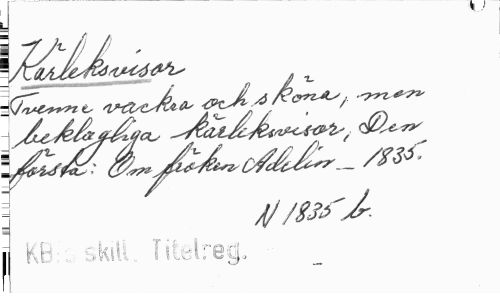 Kärleksvisor
Tvenne vackra och sköna, men
beklagliga kärleksvisor, Den
första: Om fröken Adelin _ 1835.
N 1835 b.
KB:s skill. Titelreg.